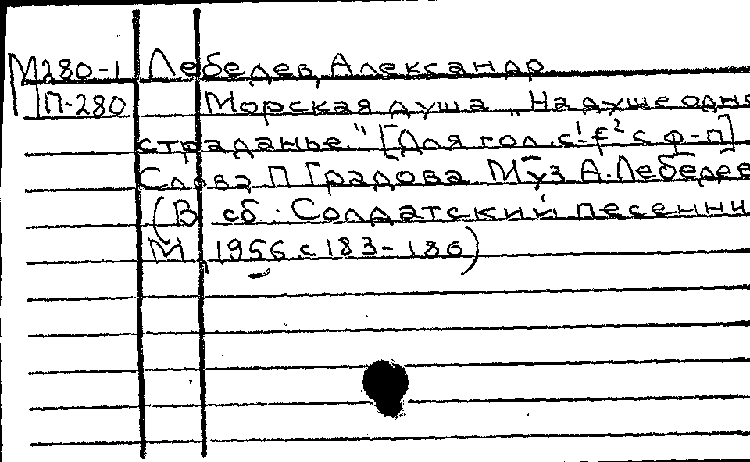 М280-1 Лебедев, Александр
П-280 Морская душа „На душе одно
страданье" [Для гол. c¹-f² с ф-п]
Слова П Градова Муз А. Лебедев
(В сб. Солдатский песенни
М 1956 с 183-186)